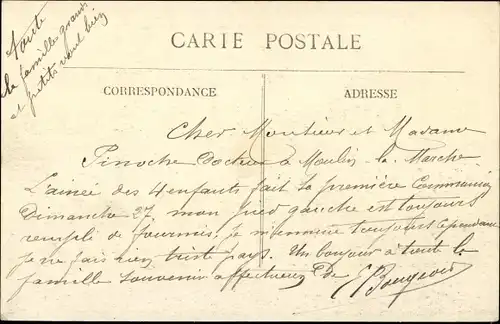 toute
la famille grands
et petits vont bien
CARTE POSTALE
CORRESPONDANCE
ADRESSE
Cher Monsieur et Madame
Pinoche à Moulin la Marche
L'ainée des 4 enfants fait la première Communion
Dimanche 27. mon pied gauche est toujours
rempli de fourmis, je toujours cependant
je ne fais rien triste pays. Un bonjour à toute la
famille souvenir affectueux de